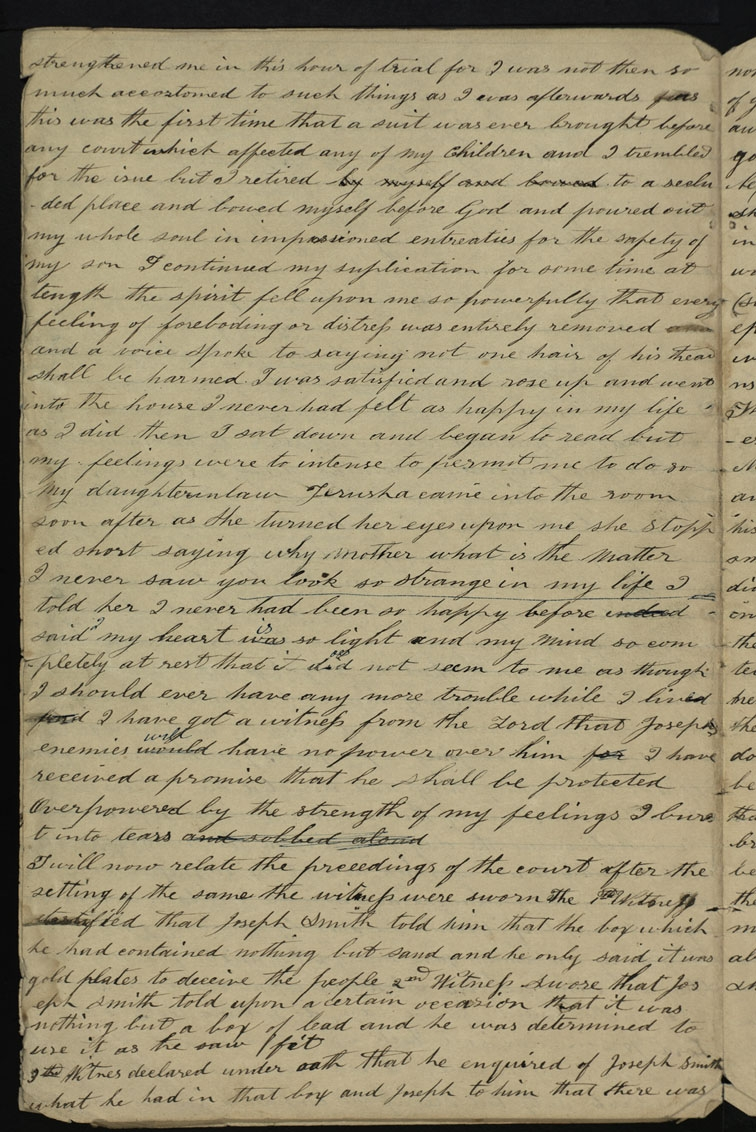 strengthened me in this hour of trial for I was not then so
much accoztomed to such things as I was afterwards
this was the first time that a suit was ever brought before
any court which affected any of my children and I trembled
for the isue but I retired by myself and bowed to a seclu
-ded place and bowed myself before God and poured out
my whole soul in impassioned entreaties for the safety of
my son I continued my suplication for some time at
length the spirit fell upon me so powerfully that every
feeling of foreboding or distress was entirely removed
and a voice spoke to saying not one hair of his head
shall be harmed I was satisfied and rose up and went
into the house I never had felt as happy in my life
as I did then I sat down and began to read but
my feelings were to intense to permit me to do so
My daughterinlaw Jerusha came into the room
soon after as she turned her eyes upon me she stopp
ed short saying why mother what is the matter
I never saw you look so strange in my life I
told her I never had been so happy before indeed
said my heart is was so light and my mind so com
-pletely at rest that it did not seem to me as though
I should ever have any more trouble while I lived
and I have got a witness from the Lord that Josephs
enemies will would have no power over him for I have
received a promise that he shall be protected
Overpowered by the strength of my feelings I burs
t into tears and sobbed aloud
I will now relate the preceedings of the court after the
setting of the same the witness were sworn The 1st Witness
testified that Joseph Smith told him that the box which
he had contained nothing but sand and he only said it was
gold plates to deceive the people 2nd Witness swore that Jos
eph Smith told upon a certain occazion that it was
nothing but a box of lead and he was determined to
use it as he saw fit
3rd Witnes declared under oath that he enquired of Joseph Smith
what he had in that box and Joseph to him that there was